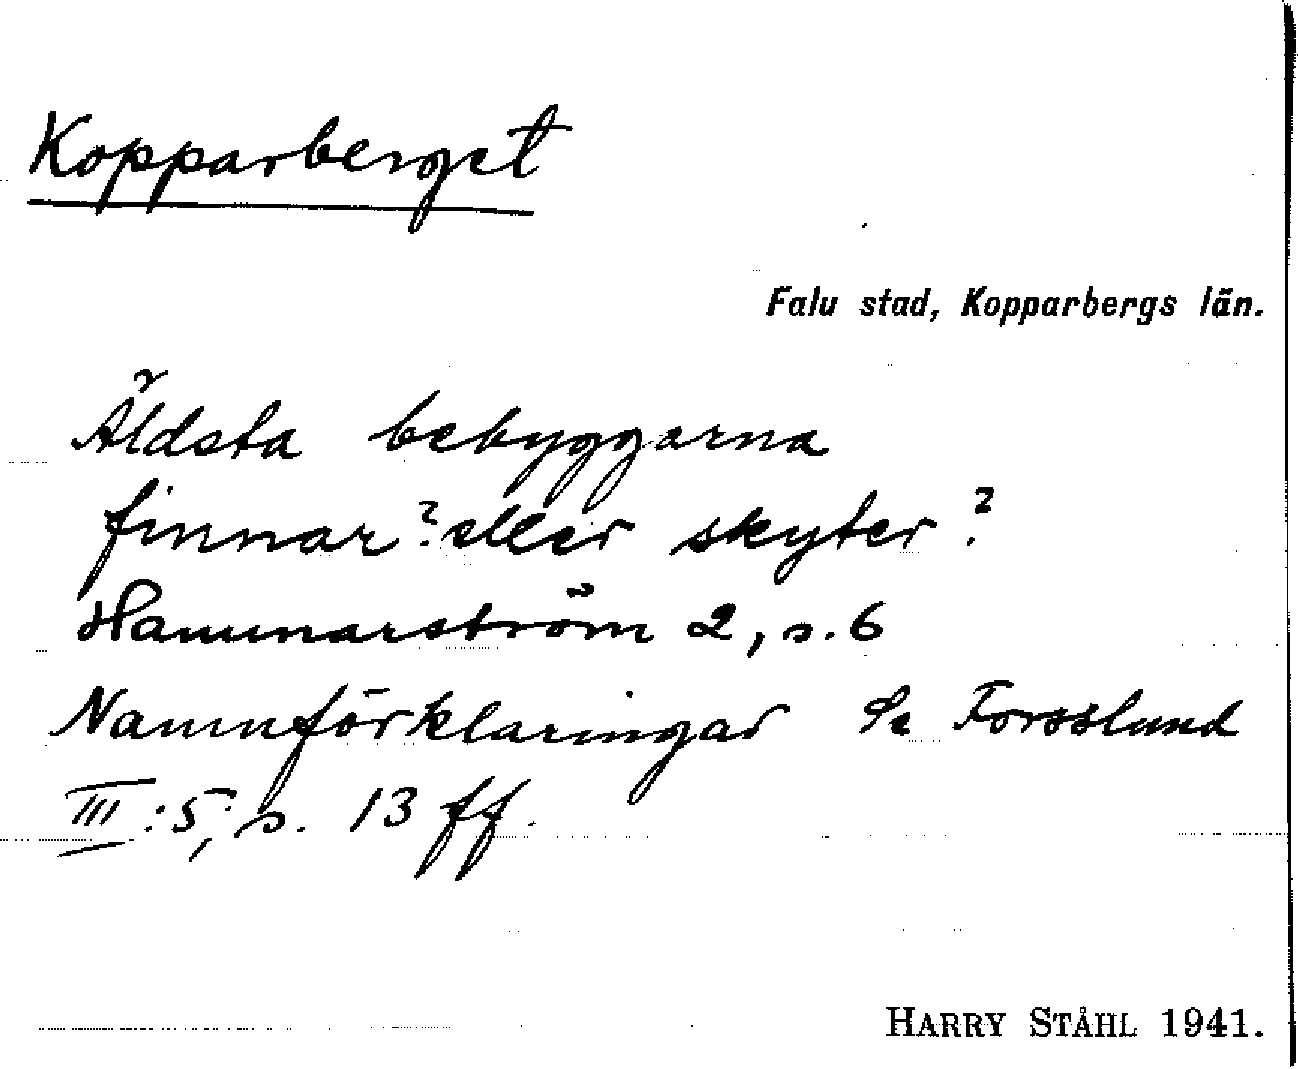 Kopparberget
Falu stad, Kopparbergs län.
Äldsta bebyggarna
finnar? eller skyter?
Hammarström 2, s. 6
Namnförklaringar Se Forsslund
III:5, s. 13 ff.
HARRY STÅHL 1941.